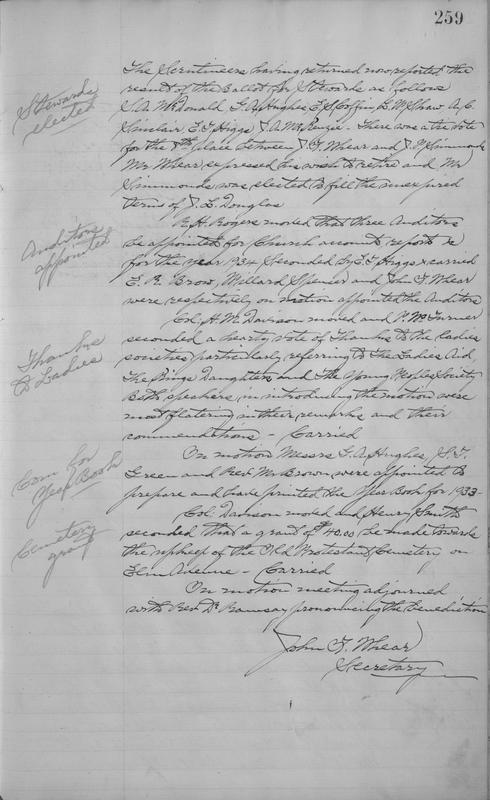 259
The Scrutineers having returned now reported the
Stewards elected
result of the Ballot for Stewards as follows
S. A. McDonald, G. A. Hughes, E. S. Coffin, D. M. Shaw, A. C.
Sinclair, E. T. Higgs, J. A. McKenzie. There was a tie vote
for the 8th place between J. F. Whear and J. P. Simmonds
Mr Whear, expressed his wish to retire and Mr
Simmonds was elected to fill the unexpired
terms of J. L. Douglas
Auditors appointed
R. H. Rogers moved that three Auditors
be appointed for Church accounts, reports &c
for the year 1934 Seconded by E. T. Higgs & carried
E. R. Brow, Millard Spencer and John F. Whear
were, respectively on motion appointed the Auditors
Thanks to Ladies
Col. H. M. Davison moved and P. McTurner
seconded a hearty vote of Thanks to the ladies
societies particularly referring to the Ladies Aid,
The Kings Daughters and the Young Peoples Society
Both speakers in introducing the motion were
most flatering in their remarks and their
commendations – Carried
Com for Year Book
On motion Messrs G. A. Hughes,
Green and Revd Mr Brown, were appointed to
prepare and have printed the Year Book for 1933-
Cemetery grant
Col. Davison moved and Henry Smith
seconded that a grant of $40.00 be made towards
the upkeep of the Old Protestant Cemetery on
Elm Avenue – Carried
On motion meeting adjourned
with Rev. Dr Ramsay pronouncing the Benediction
John F. Whear
Secretary